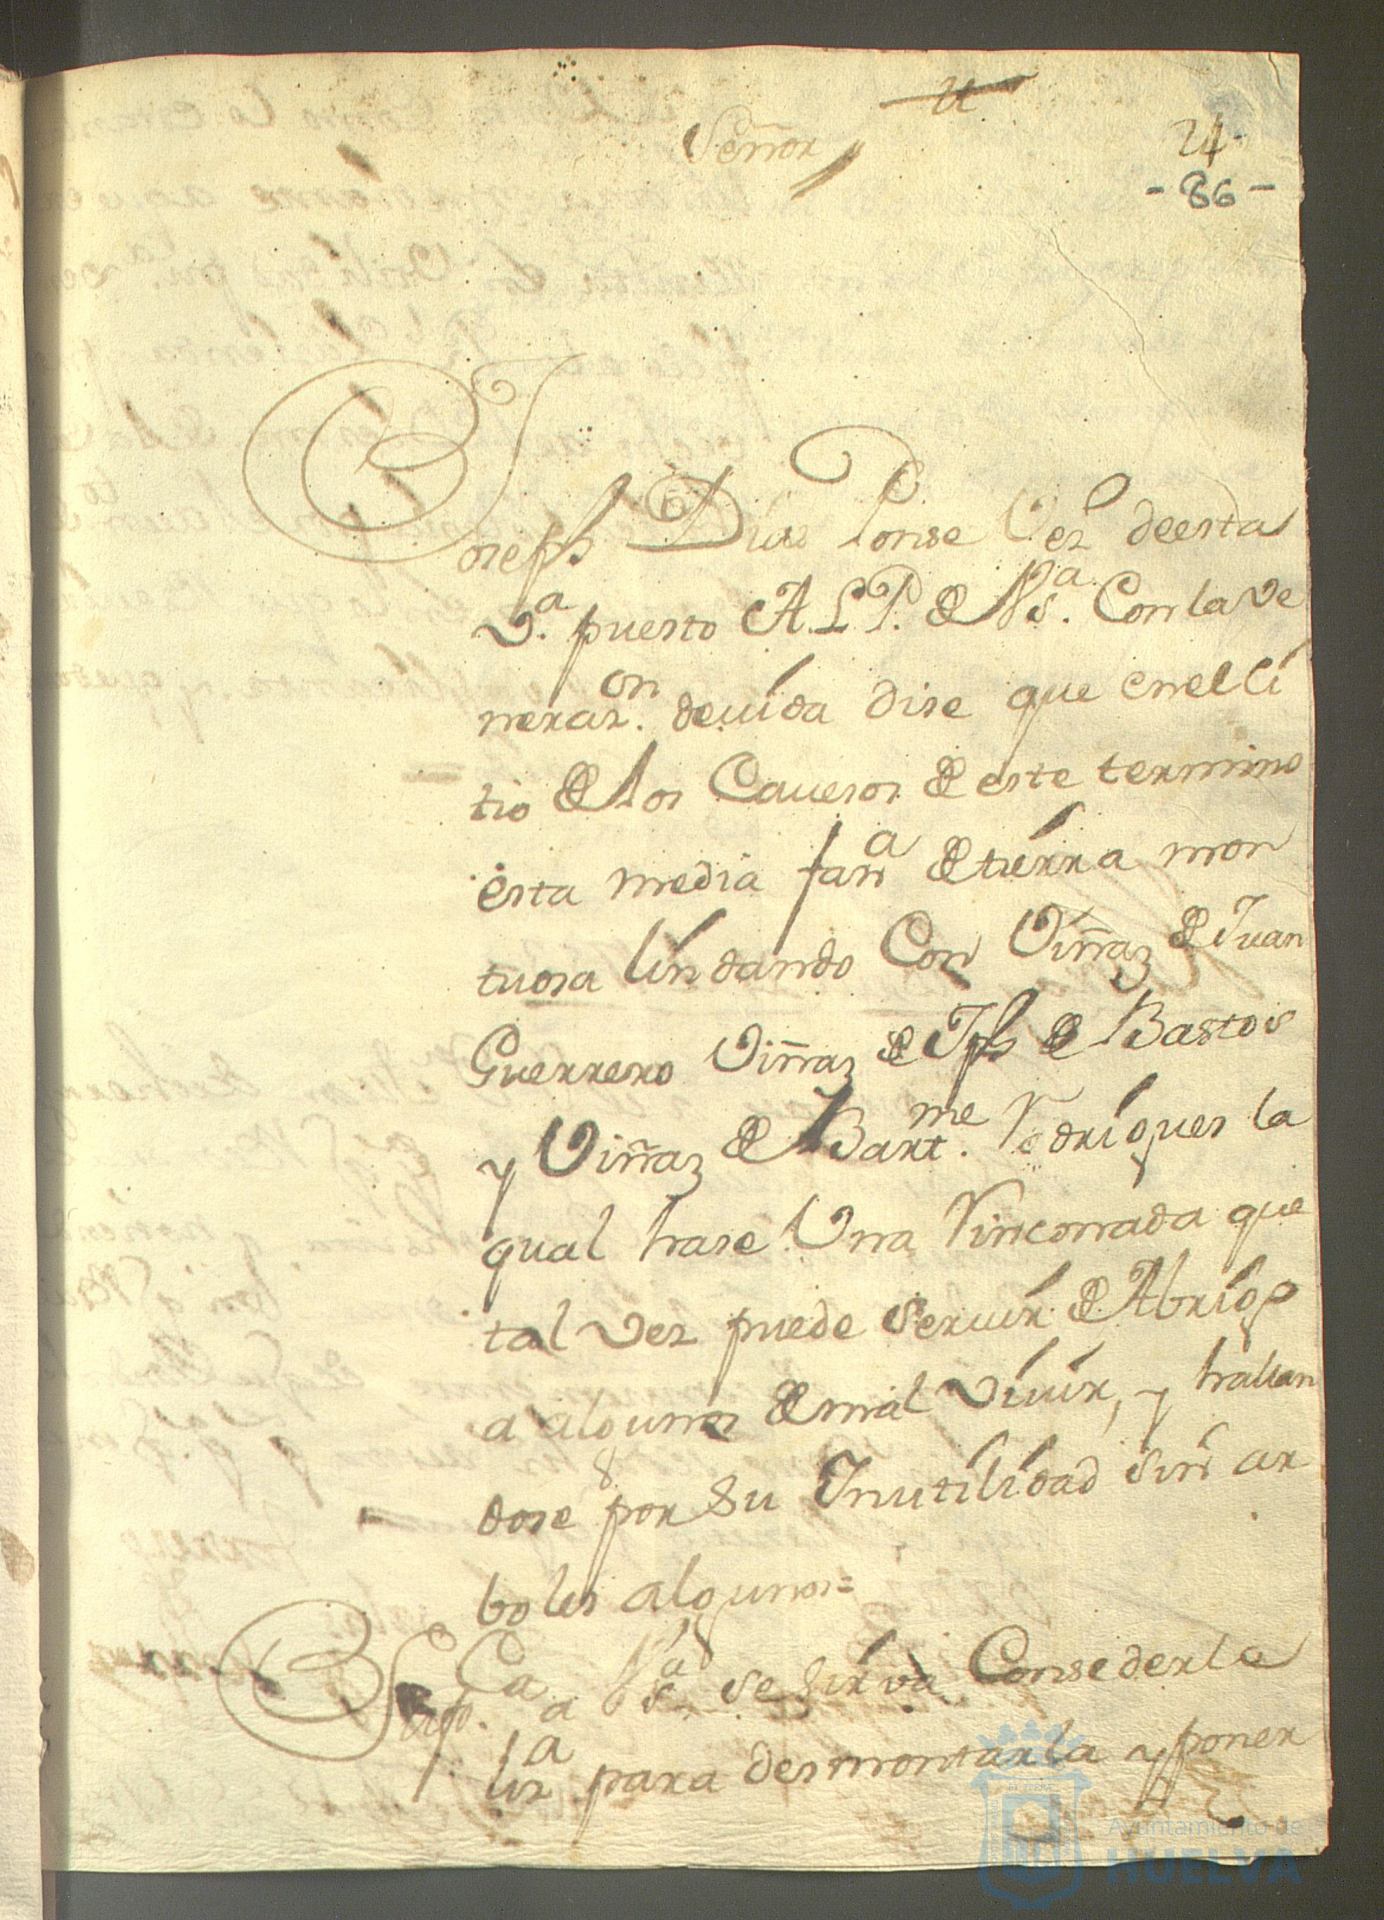 u
Señor
24
- 86 -
Joseph Dias Ponse Vez.º deesta
V.ª puesto A. L. P. de Vs.ª Con la ve
neraz.on deuida dise que en el si
tio de los Caueros de este termino
esta media fan.a de tierra mon
tuosa lindando Con Viñas de Juan
Guerrero Viñas de Jph de Bastos
y Viñas de Bart.me Rodrigues la
qual hase Una Rinconada que
tal ves puede seruir de Abrigo
a algunos de mal viuir, y hallan
dose por su Inutilidad sin ar
boles algunos=
Supp.ca a Vs.a se sirva Consederle
liz.a para desmontarla y poner
Ayuntamiento de
HUELVA